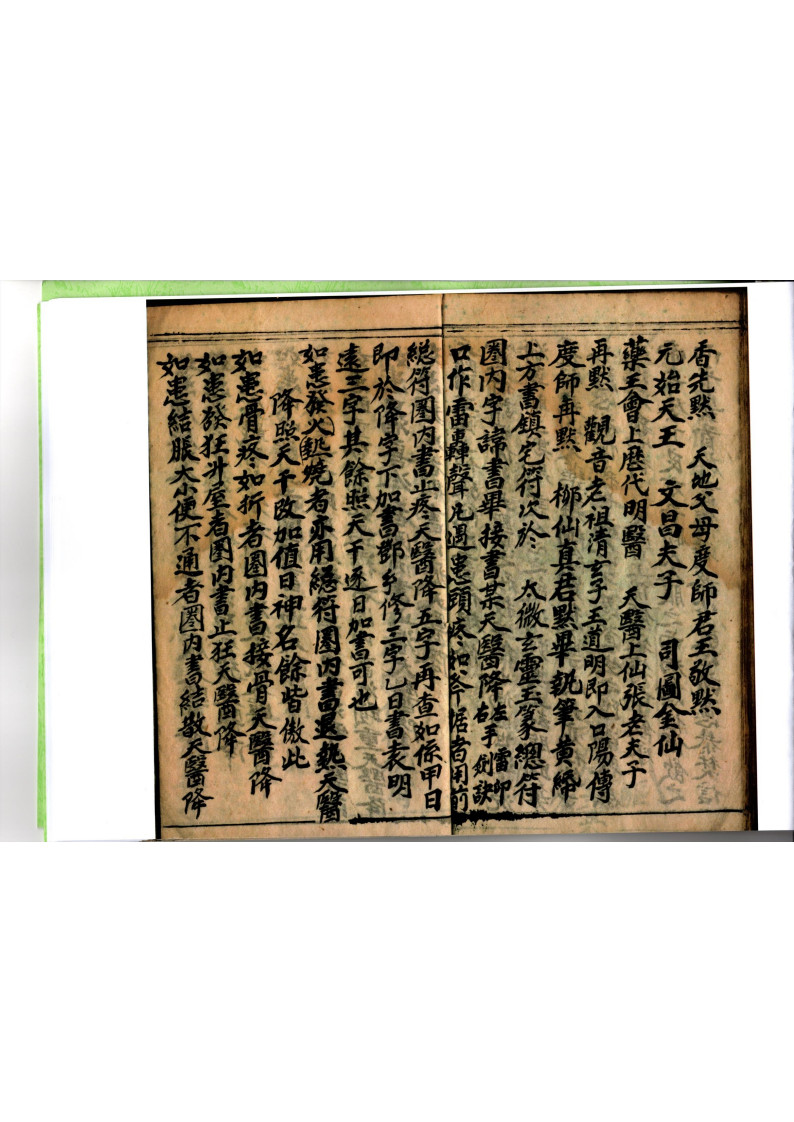 香先黙　天地父母度師君王敬黙
元始天王　文昌夫子　司圖金仙
藥王會上歷代明醫　天醫上仙張老夫子
再黙　觀音老祖清玄子王道明即入口陽傳
度師再黙　柳仙真君黙畢執筆黄締
上方書鎮宅符次於　太微玄靈玉篆總符
圈内字諱書畢接書某天醫降左手雷印右手劍訣
口作雷轟聲凡遇患頭疼如斧者用前
總符圈内書止疼天醫降五字再查如係甲日
即於降字下加書鄧乡修三字乙日書袁明
遠三字其餘照天干逐日加書可也
如患發火熱燒者亦用總符圈内書退熱天醫
降照天干改加值日神名餘皆倣此
如患骨疼如折者圈内書接骨天醫降
如患發狂升屋者圈内書止狂天醫降
如患結脹大小便不通者圈内書結散天醫降